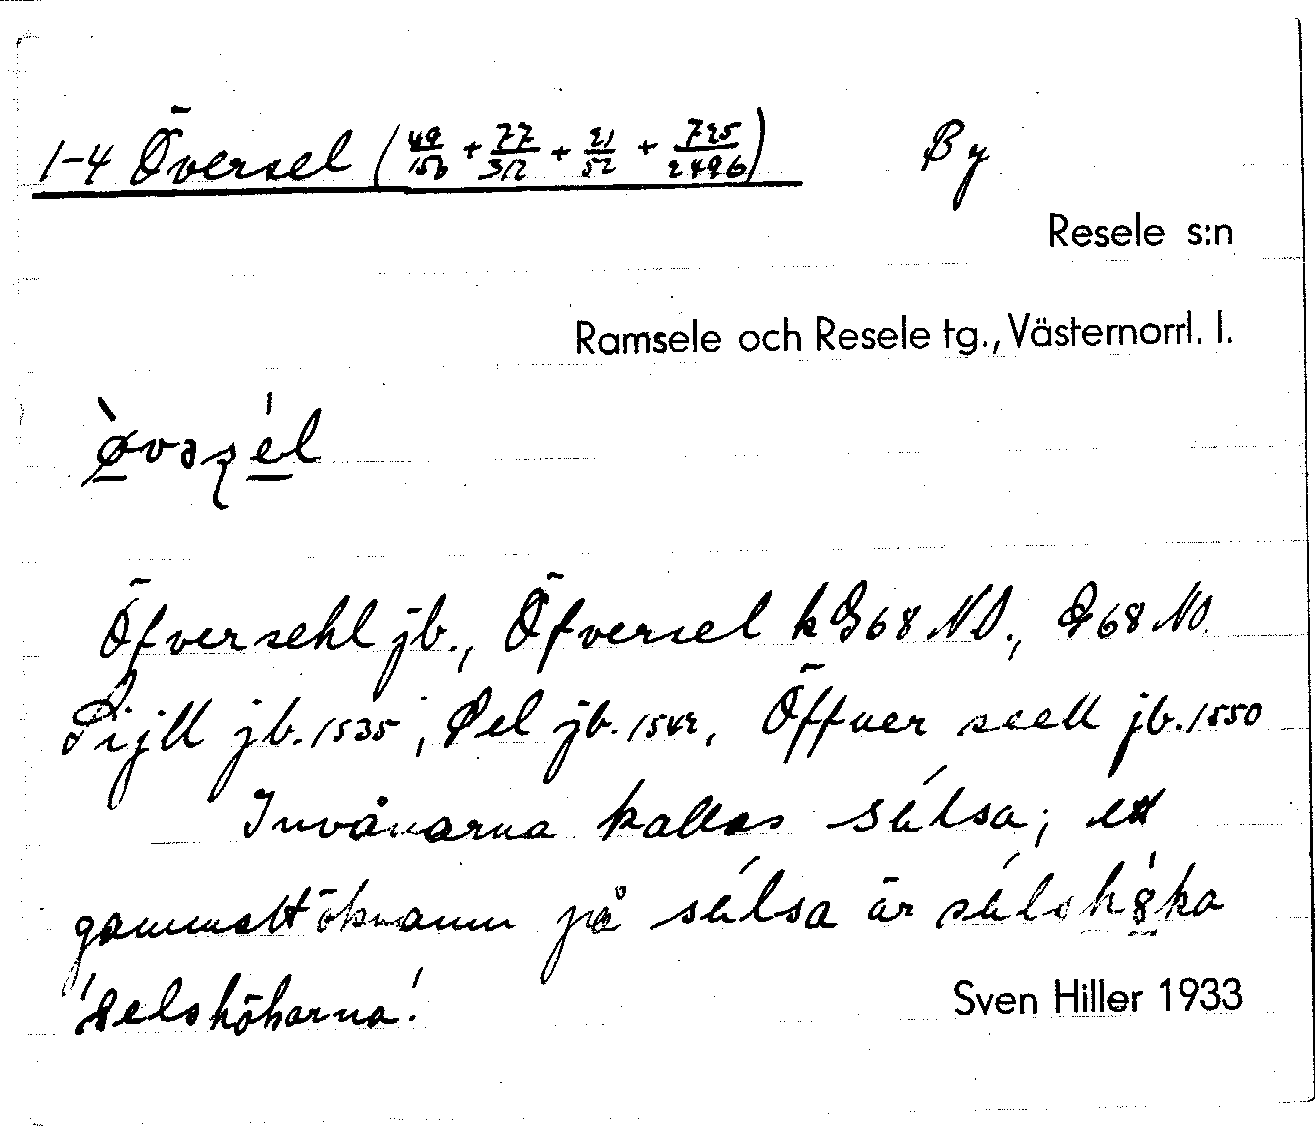 1-4 Översel (49/156 + 77/312 + 21/52 + 725/2496) By
Resele s:n
Ramsele och Resele tg., Västernorrl. l.
Öfversehl jb., Öfversel k G68 NO., G68 NO.
Sijll jb. 1535, Sel jb. 1542, Öffuer seell jb. 1550
Invånarna kallas sélsa; ett
gammalt öknamn på sélsa är
'selshökarna'.
Sven Hiller 1933